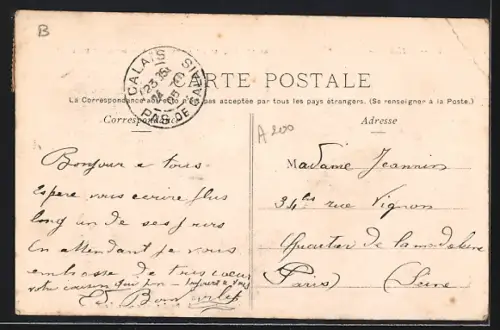 B
CALAIS ST
PAS-DE-CALAIS
CARTE POSTALE
La Correspondance au recto n'est pas acceptée par tous les pays étrangers. (Se renseigner à la Poste.)
Correspondance
Adresse
A 200
Bonjour a tous
Espere vous ecrire plus
long un de ses jours
En attendant je vous
embrasse de tous coeur
votre cousin qui
Ed.
Madame Jeannin
34 rue Vignon
Quartier de la madeleine
Paris (Seine